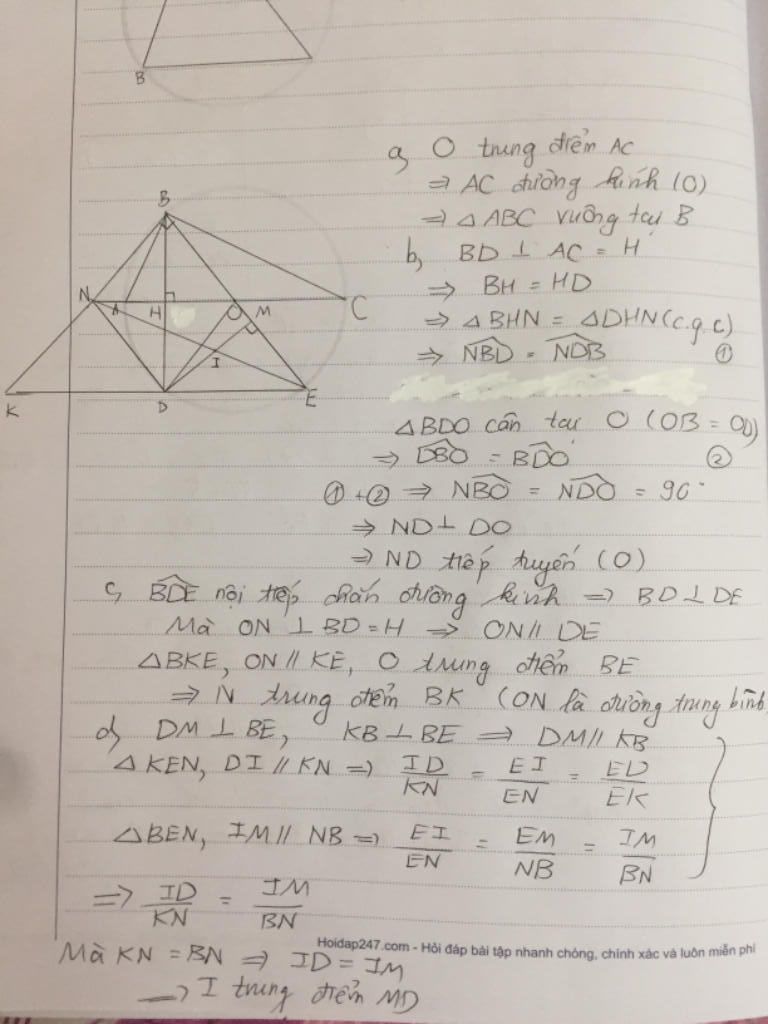 B
a, O trung điểm AC
⇒ AC đường kính (O)
⇒ △ABC vuông tại B
b, BD ⊥ AC = H
⇒ BH = HD
⇒ △BHN = △DHN (c.g.c)
⇒ \widehat{NBD} = \widehat{NDB} ①
△BDO cân tại O (OB = OD)
⇒ \widehat{DBO} = \widehat{BDO} ②
① + ② ⇒ \widehat{NBO} = \widehat{NDO} = 90°
⇒ ND ⊥ DO
⇒ ND tiếp tuyến (O)
B
N A H O M C
I
K D E
c, \widehat{BDE} nội tiếp chắn đường kính ⇒ BD ⊥ DE
Mà ON ⊥ BD = H ⇒ ON // DE
△BKE, ON // KE, O trung điểm BE
⇒ N trung điểm BK (ON là đường trung bình)
d, DM ⊥ BE, KB ⊥ BE ⇒ DM // KB
△KEN, DI // KN ⇒ ID/KN = EI/EN = ED/EK
△BEN, IM // NB ⇒ EI/EN = EM/NB = IM/BN
⇒ ID/KN = IM/BN
Hoidap247.com - Hỏi đáp bài tập nhanh chóng, chính xác và luôn miễn phí
Mà KN = BN ⇒ ID = IM
⇒ I trung điểm MD